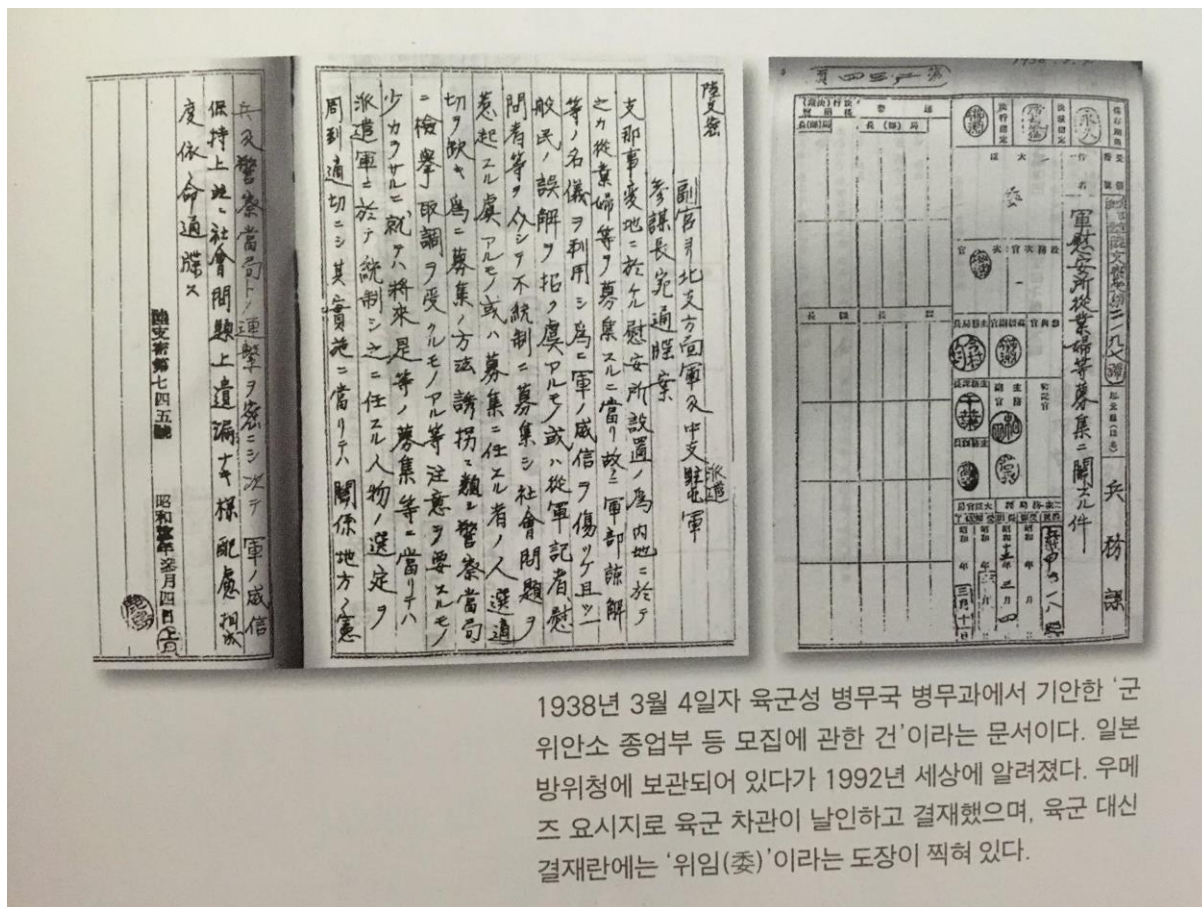 軍慰安所從業婦等募集ニ關スル件
兵務課
陸支密
副官ヨリ北支方面軍及中支派遣軍
參謀長宛通牒案
支那事變地ニ於ケル慰安所設置ノ爲内地ニ於テ
之カ從業婦等ヲ募集スルニ當リ故ラニ軍部諒解
等ノ名儀ヲ利用シ爲ニ軍ノ威信ヲ傷ツケ且ツ一
般民ノ誤解ヲ招ク虞アルモノ或ハ從軍記者、慰
問者等ヲ介シテ不統制ニ募集シ社會問題ヲ
惹起スル虞アルモノ或ハ募集ニ任スル者ノ人選適
切ヲ欠キ爲ニ募集ノ方法誘拐ニ類シ警察當局
ニ檢擧取調ヲ受クルモノアル等注意ヲ要スルモノ
少カラサルニ就テハ將來是等ノ募集等ニ當リテハ
派遣軍ニ於テ統制シ之ニ任スル人物ノ選定ヲ
周到適切ニシ其實施ニ當リテハ關係地方ノ憲
兵及警察當局トノ連繫ヲ密ニシ次テ軍ノ威信
保持上竝ニ社會問題上遺漏ナキ樣配慮相成
度依命通牒ス
陸支密第七四五號 昭和拾參年參月四日
1938년 3월 4일자 육군성 병무국 병무과에서 기안한 ‘군
위안소 종업부 등 모집에 관한 건’이라는 문서이다. 일본
방위청에 보관되어 있다가 1992년 세상에 알려졌다. 우메
즈 요시지로 육군 차관이 날인하고 결재했으며, 육군 대신
결재란에는 ‘위임(委)’이라는 도장이 찍혀 있다.